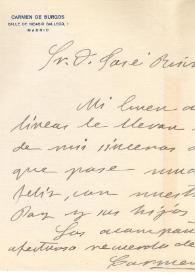 CARMEN DE BURGOS
CALLE DE NICASIO GALLEGO, 1
MADRID
Sr. D. José
Mi buen
líneas le llevan
de mis sinceros
que pase una
feliz, con
Paz y sus hijos
Los acompaña
afectuoso recuerdo de
Carmen